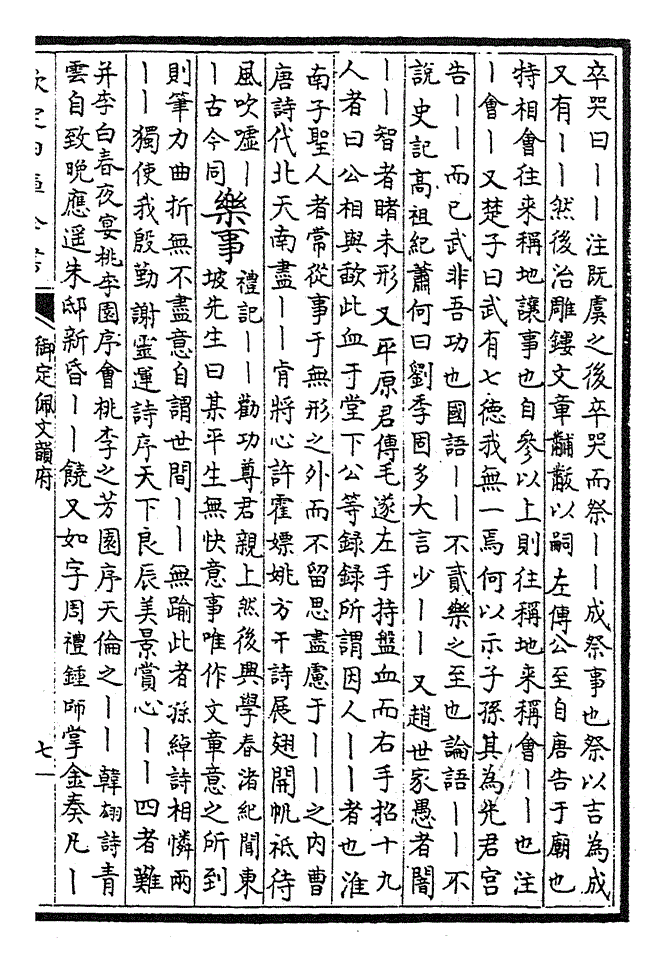 卒哭曰丨丨注既虞之後卒哭而祭丨丨成祭事也祭以吉為成
又有丨丨然後治雕鏤文章黼黻以嗣左傳公至自唐告于廟也
特相會往来稱地讓事也自參以上則往稱地来稱會丨丨也注
丨會丨又楚子曰武有七德我無一焉何以示子孫其為先君宫
告丨丨而已武非吾功也國語丨丨不貳樂之至也論語丨丨不
說史記高祖紀蕭何曰劉季固多大言少丨丨又趙世家愚者闇
丨丨智者睹未形又平原君傳毛遂左手持盤血而右手招十九
人者曰公相與歃此血于堂下公等録録所謂因人丨丨者也淮
南子聖人者常從事于無形之外而不留思盡慮于丨丨之内曹
唐詩代北天南盡丨丨肯將心許霍嫖姚方干詩展翅開帆祗待
風吹嘘丨
丨古今同
樂事
禮記丨丨勸功尊君親上然後興學春渚紀聞東
坡先生曰某平生無快意事唯作文章意之所到
則筆力曲折無不盡意自謂世間丨丨無踰此者孫綽詩相憐兩
丨丨獨使我殷勤謝靈運詩序天下良辰美景賞心丨丨四者難
并李白春夜宴桃李園序會桃李之芳園序天倫之丨丨韓翃詩青
雲自致晩應遥朱邸新昏丨丨饒又如字周禮鍾師掌金奏凡丨
御定佩文韻府
七一